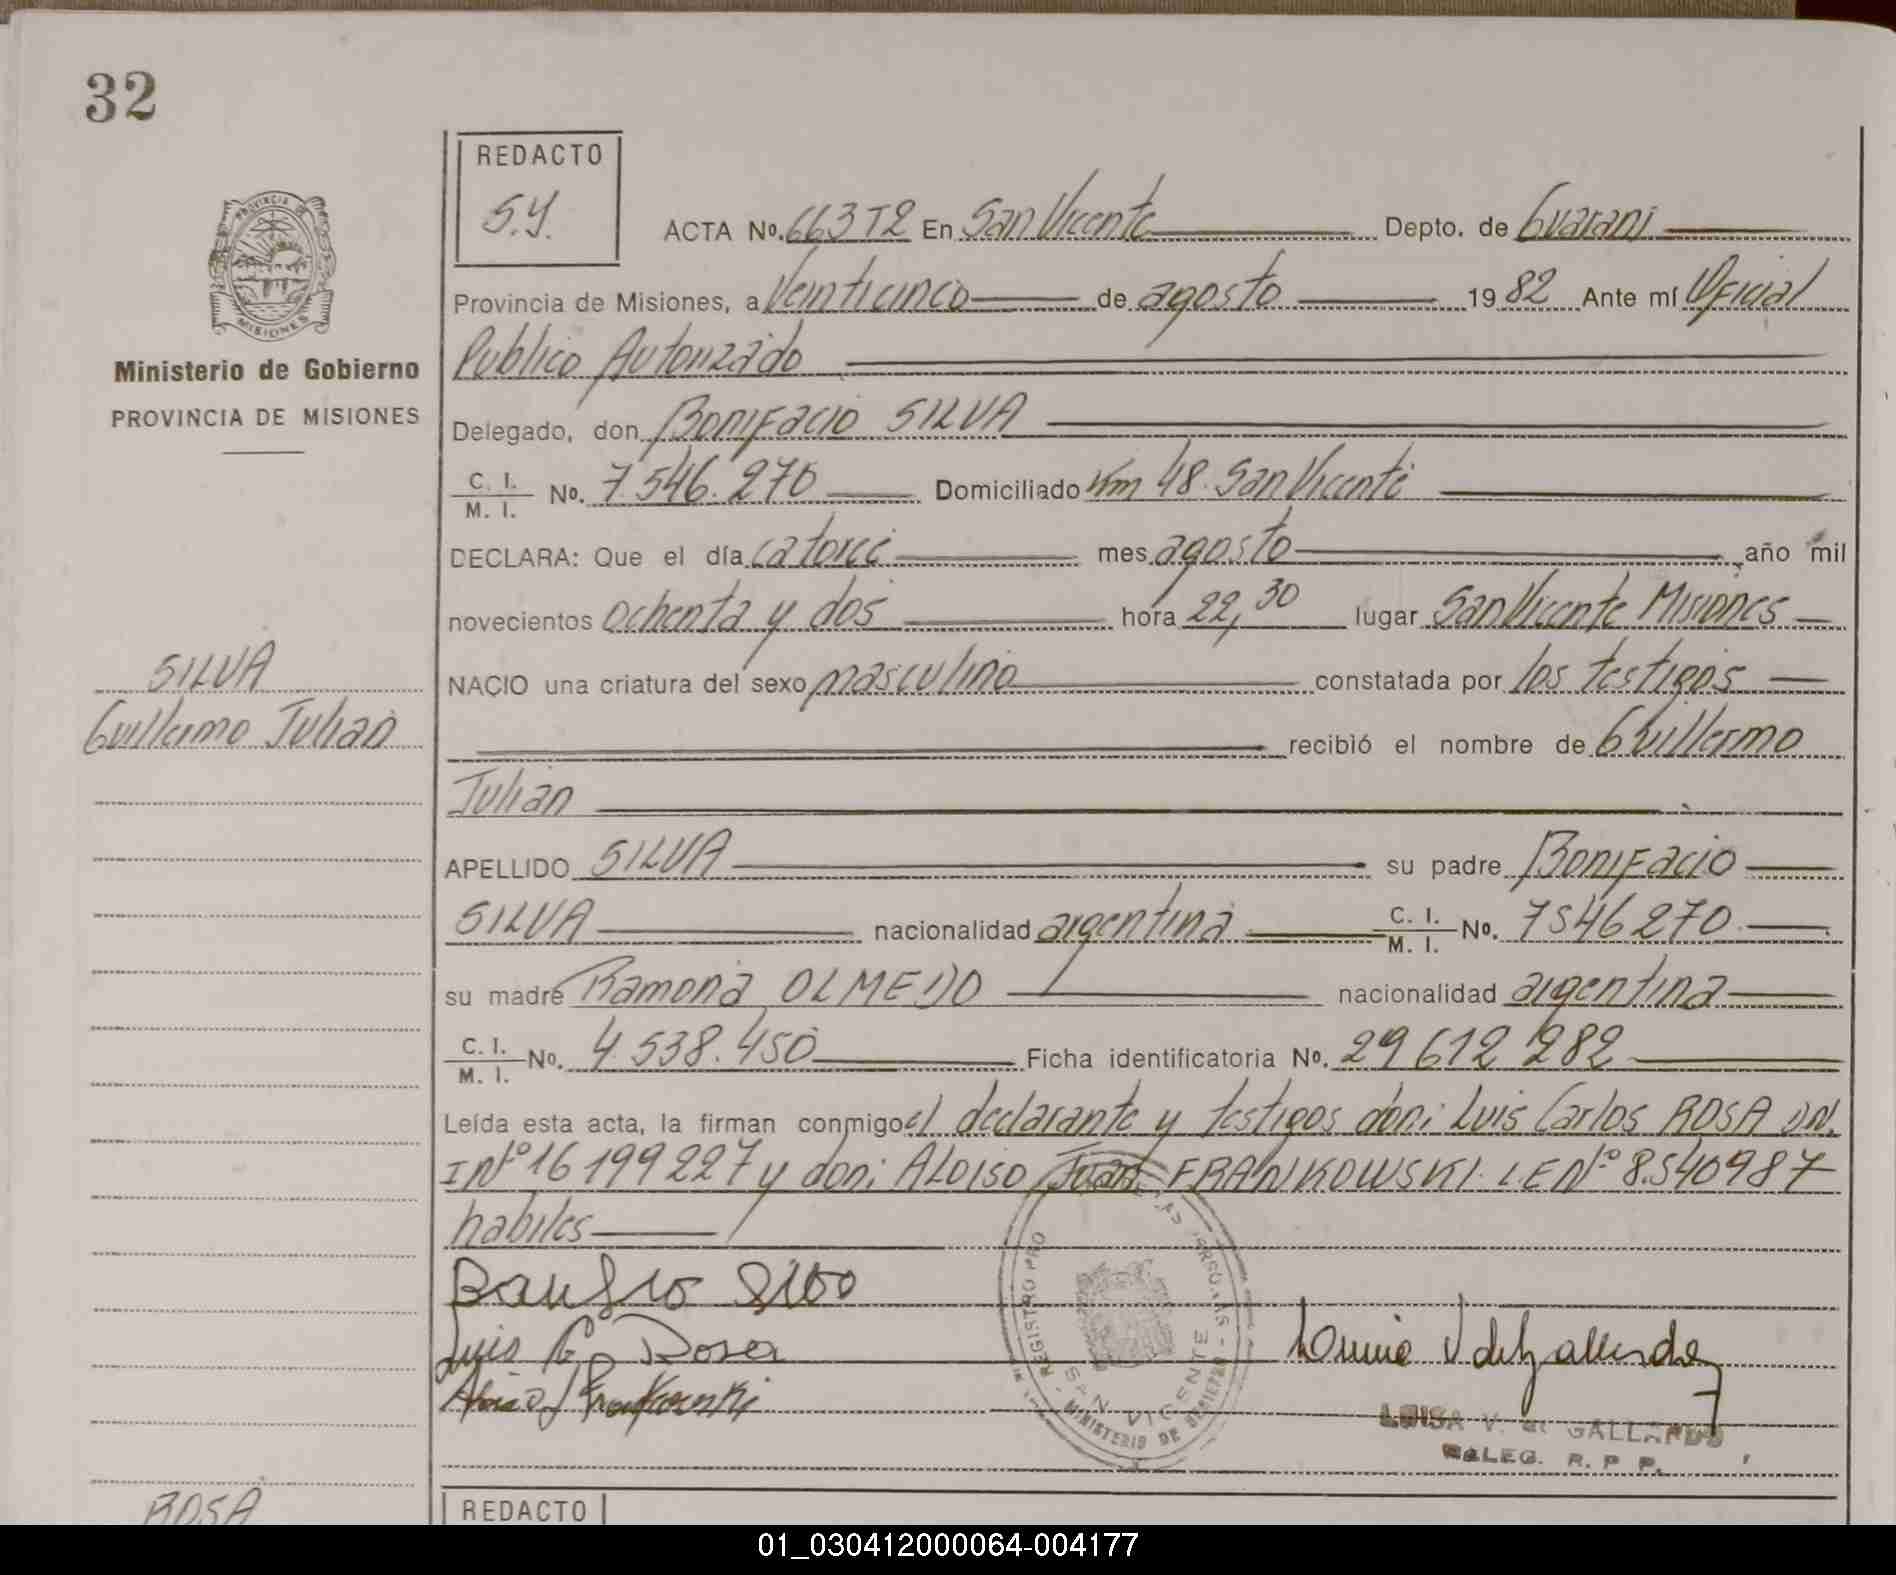 32
REDACTO
S.Y.
PROVINCIA DE
MISIONES
Ministerio de Gobierno
PROVINCIA DE MISIONES
ACTA Nº. 663 T2 En San Vicente Depto. de Guarani
Provincia de Misiones, a Veinticinco de agosto 19 82 Ante mí Oficial
Publico Autorizado
Delegado, don Bonifacio SILVA
C. I. / M. I. Nº. 7.546.270 Domiciliado Km 48. San Vicente
DECLARA: Que el día catorce mes agosto año mil
novecientos ochenta y dos hora 22,30 lugar San Vicente Misiones
SILVA
NACIO una criatura del sexo masculino constatada por los testigos
Guillermo Julian
recibió el nombre de Guillermo
Julian
APELLIDO SILVA su padre Bonifacio
SILVA nacionalidad argentina C. I. / M. I. Nº. 7546270
su madre Ramona OLMEDO nacionalidad argentina
C. I. / M. I. Nº. 4 538.450 Ficha identificatoria Nº. 29 612 282
Leída esta acta, la firman conmigo el declarante y testigos don: Luis Carlos ROSA DN.
I Nº 16 199 227 y don: ALOISO Juan FRANKOWSKI. L.E Nº 8.540987
habiles
Luis C. Rosa
REGISTRO PRO
SAN VICENTE
MINISTERIO DE GOBIERNO
LUISA V. de GALLARDO
DELEG. R. P P.
ROSA
REDACTO
01_030412000064-004177